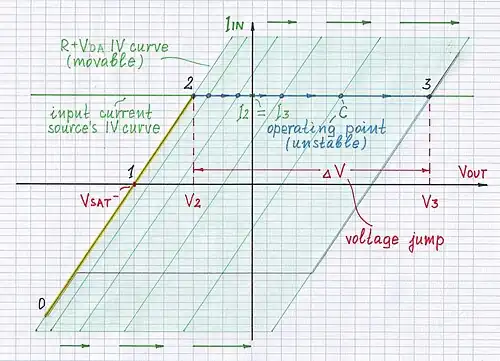 IIN
R+VDA IV curve
(movable)
2
3
input current
source's IV curve
I2 = I3
C
operating point
(unstable)
1
ΔV
VSAT
V2
VOUT
V3
voltage jump
0